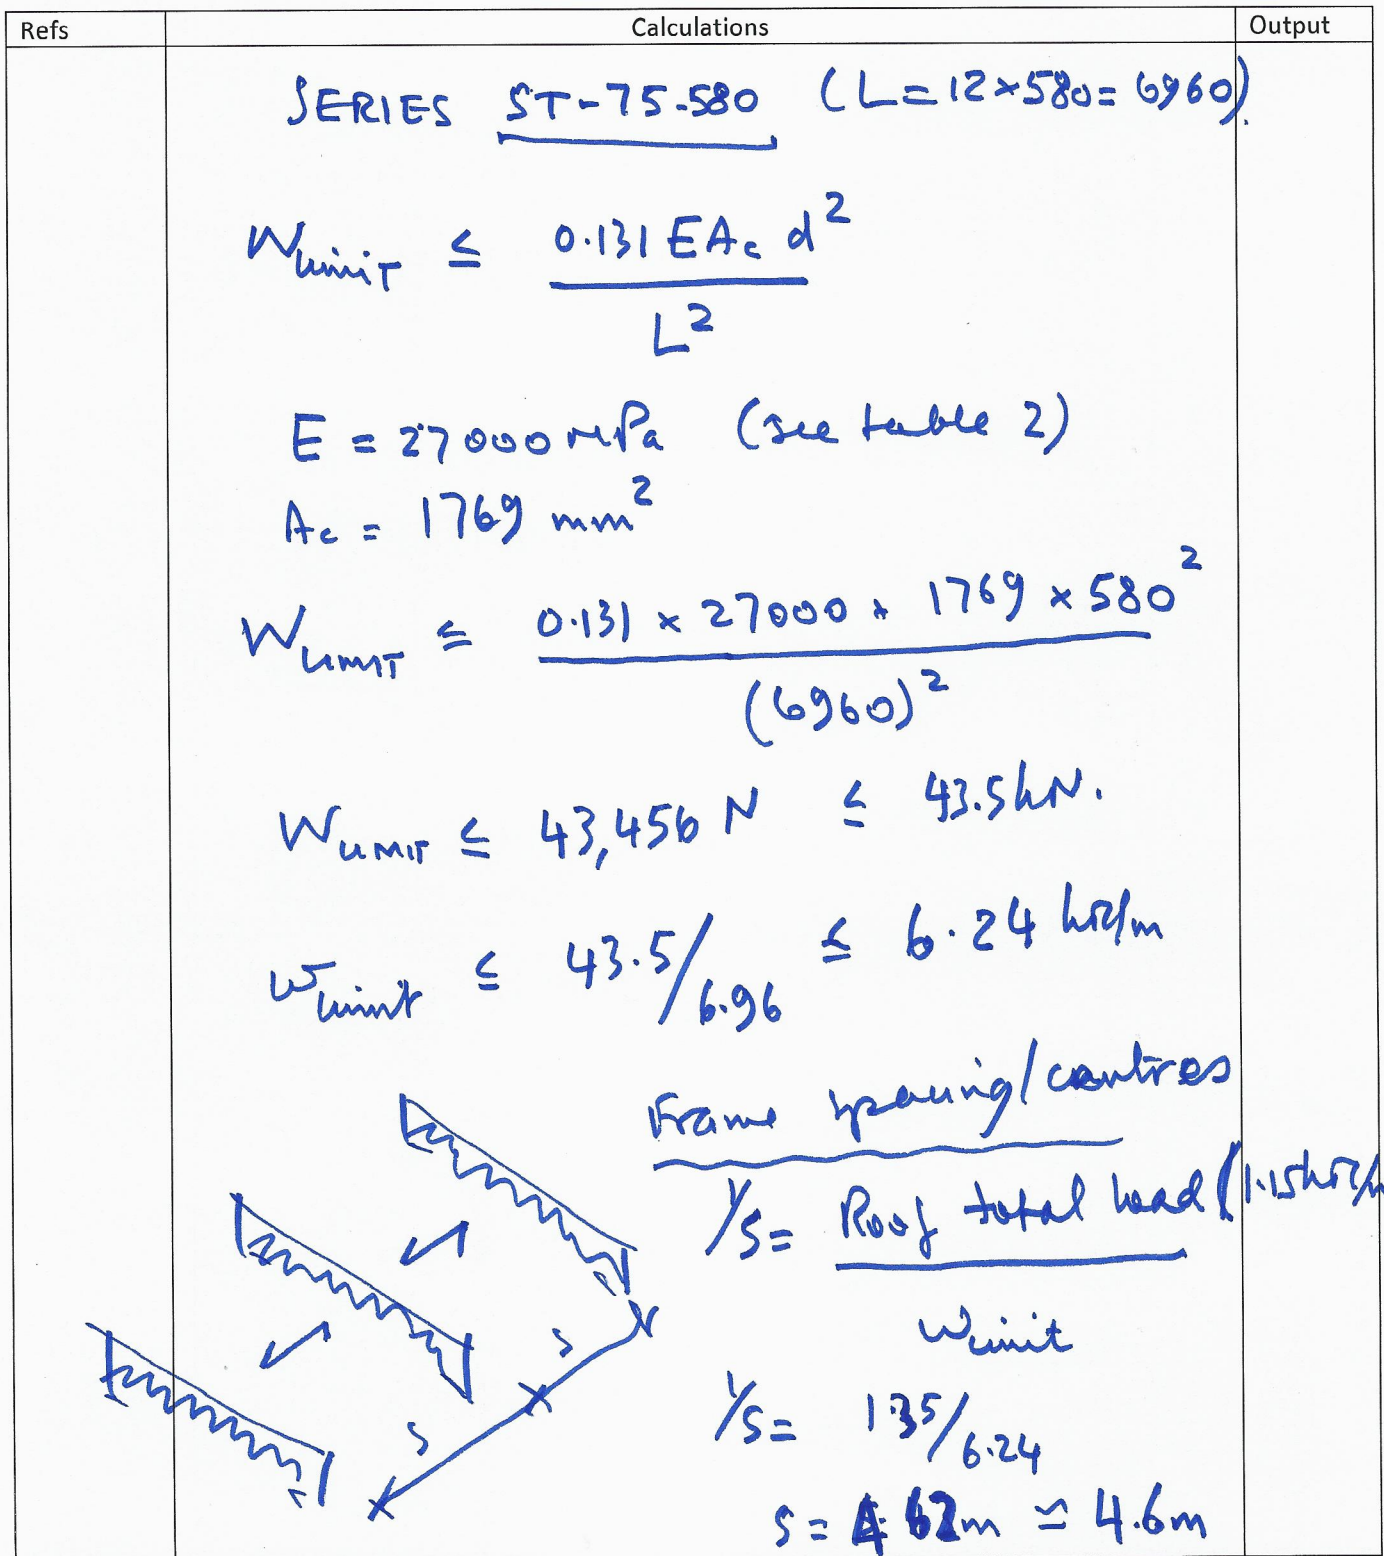 Refs Calculations Output
SERIES ST-75-580 (L=12×580=6960).
Wlimit ≤ 0.131 EAc d²
L²
E = 27000 MPa (see table 2)
Ac = 1769 mm²
WLIMIT ≤ 0.131 × 27000 × 1769 × 580²
(6960)²
WLIMIT ≤ 43,456 N ≤ 43.5kN.
wlimit ≤ 43.5/6.96 ≤ 6.24 kN/m
Frame spacing/centres
1/S = Roof total load (1.15kN/m
wlimit
1/S = 1.35/6.24
S S
S = 4.62m ≃ 4.6m